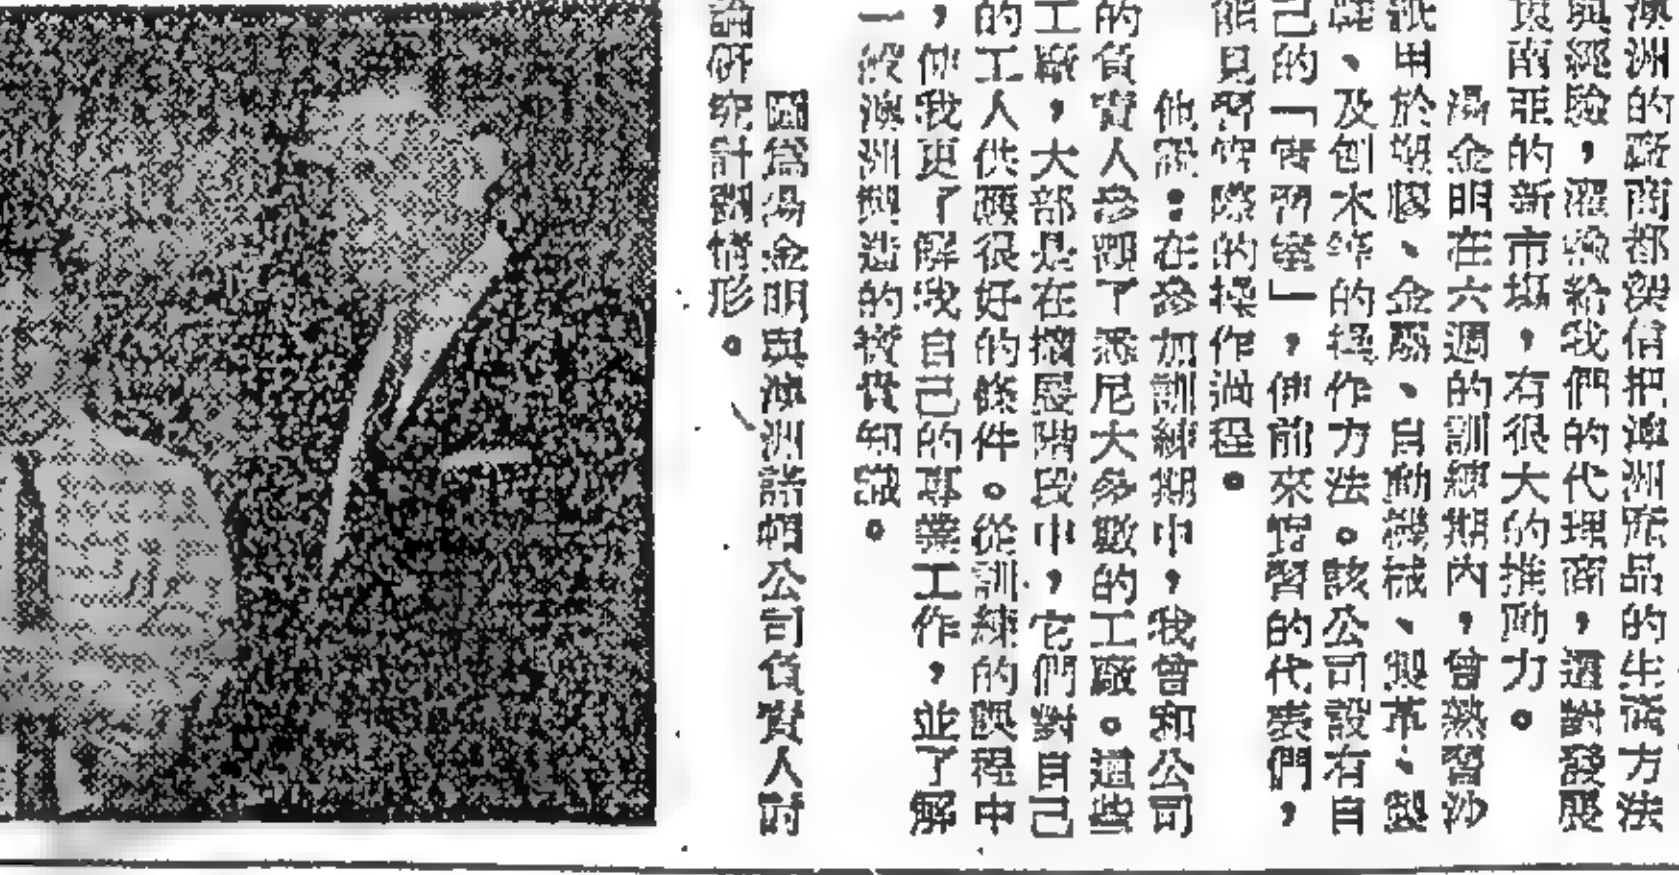 澳洲的廠商都深信把澳洲產品的生產方法
與經驗，灌輸給我們的代理商，這對發展
東南亞的新市場，有很大的推動力。
湯金明在六週的訓練期內，曾熟習沙
紙用於塑膠、金屬、自動機械、製革、製
鞋、及刨木等的操作方法。該公司設有自
己的「實習室」，使前來實習的代表們，
能見習實際的操作過程。
他說：在參加訓練期中，我曾和公司
的負責人參觀了悉尼大多數的工廠。這些
工廠，大部是在擴展階段中，它們對自己
的工人供應很好的條件。從訓練的課程中
，使我更了解我自己的專業工作，並了解
一般澳洲製造的寶貴知識。
圖爲湯金明與澳洲諾頓公司負責人討
論研究計劃情形。